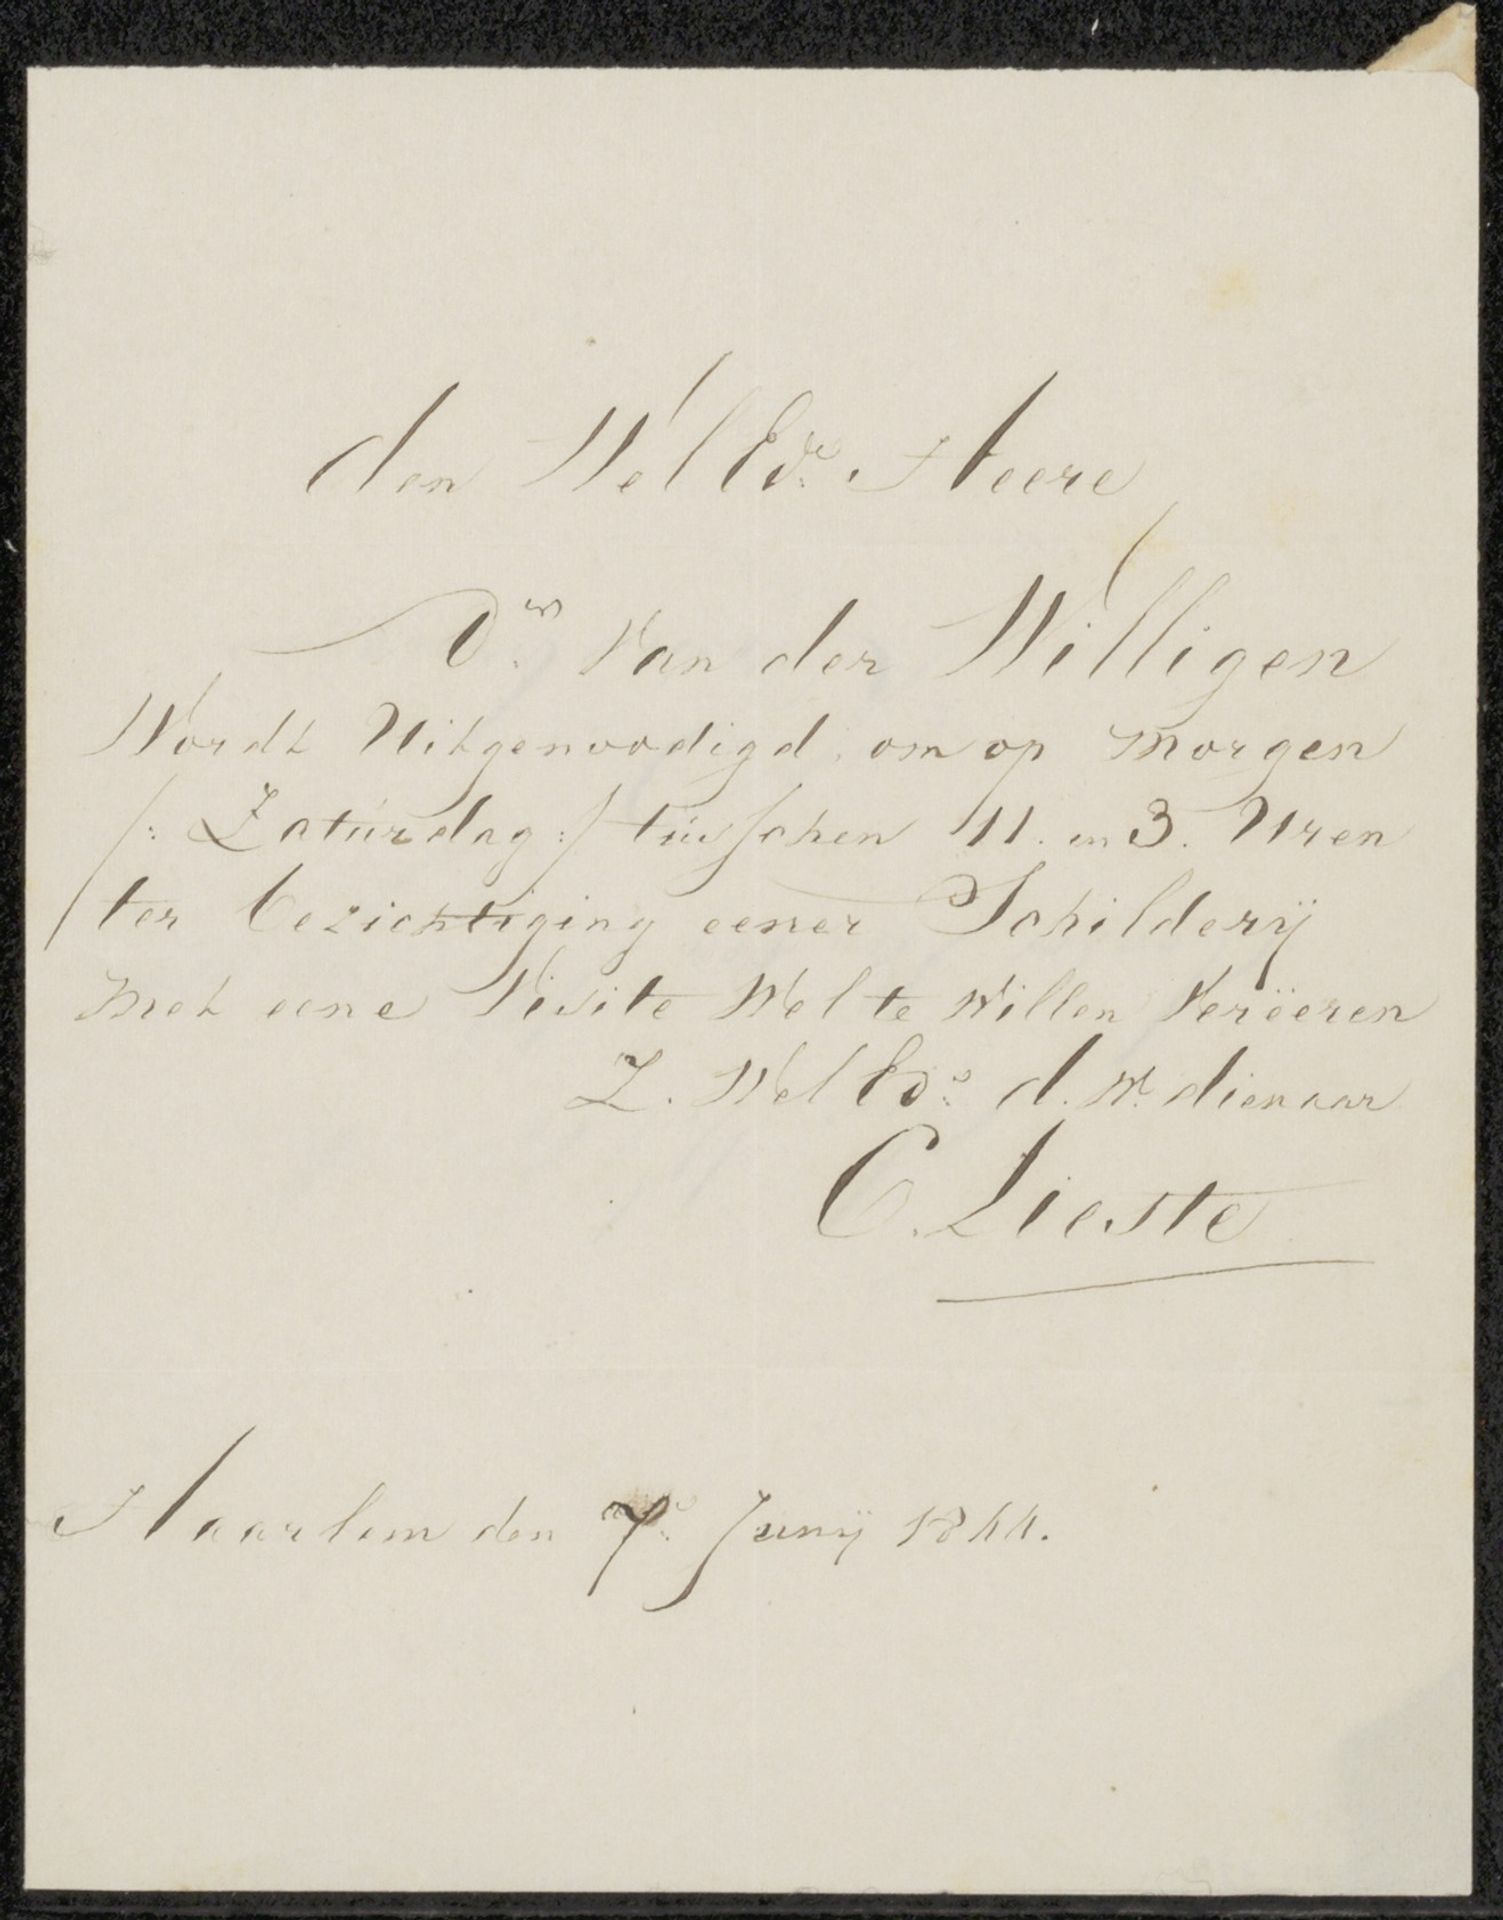 den Wel Edr. Heere
Dr. Van der Willigen
Wordt Uitgenoodigd om op morgen
/: Zaturdag :/ tusschen 11. en 3. Uren
ter bezichtiging eener Schilderij
met eene Visite Wel te Willen Verëeren
Z. Wel Eds. d. W. dienaar
C. Lieste
Haarlem den 7e. Junij 1844.